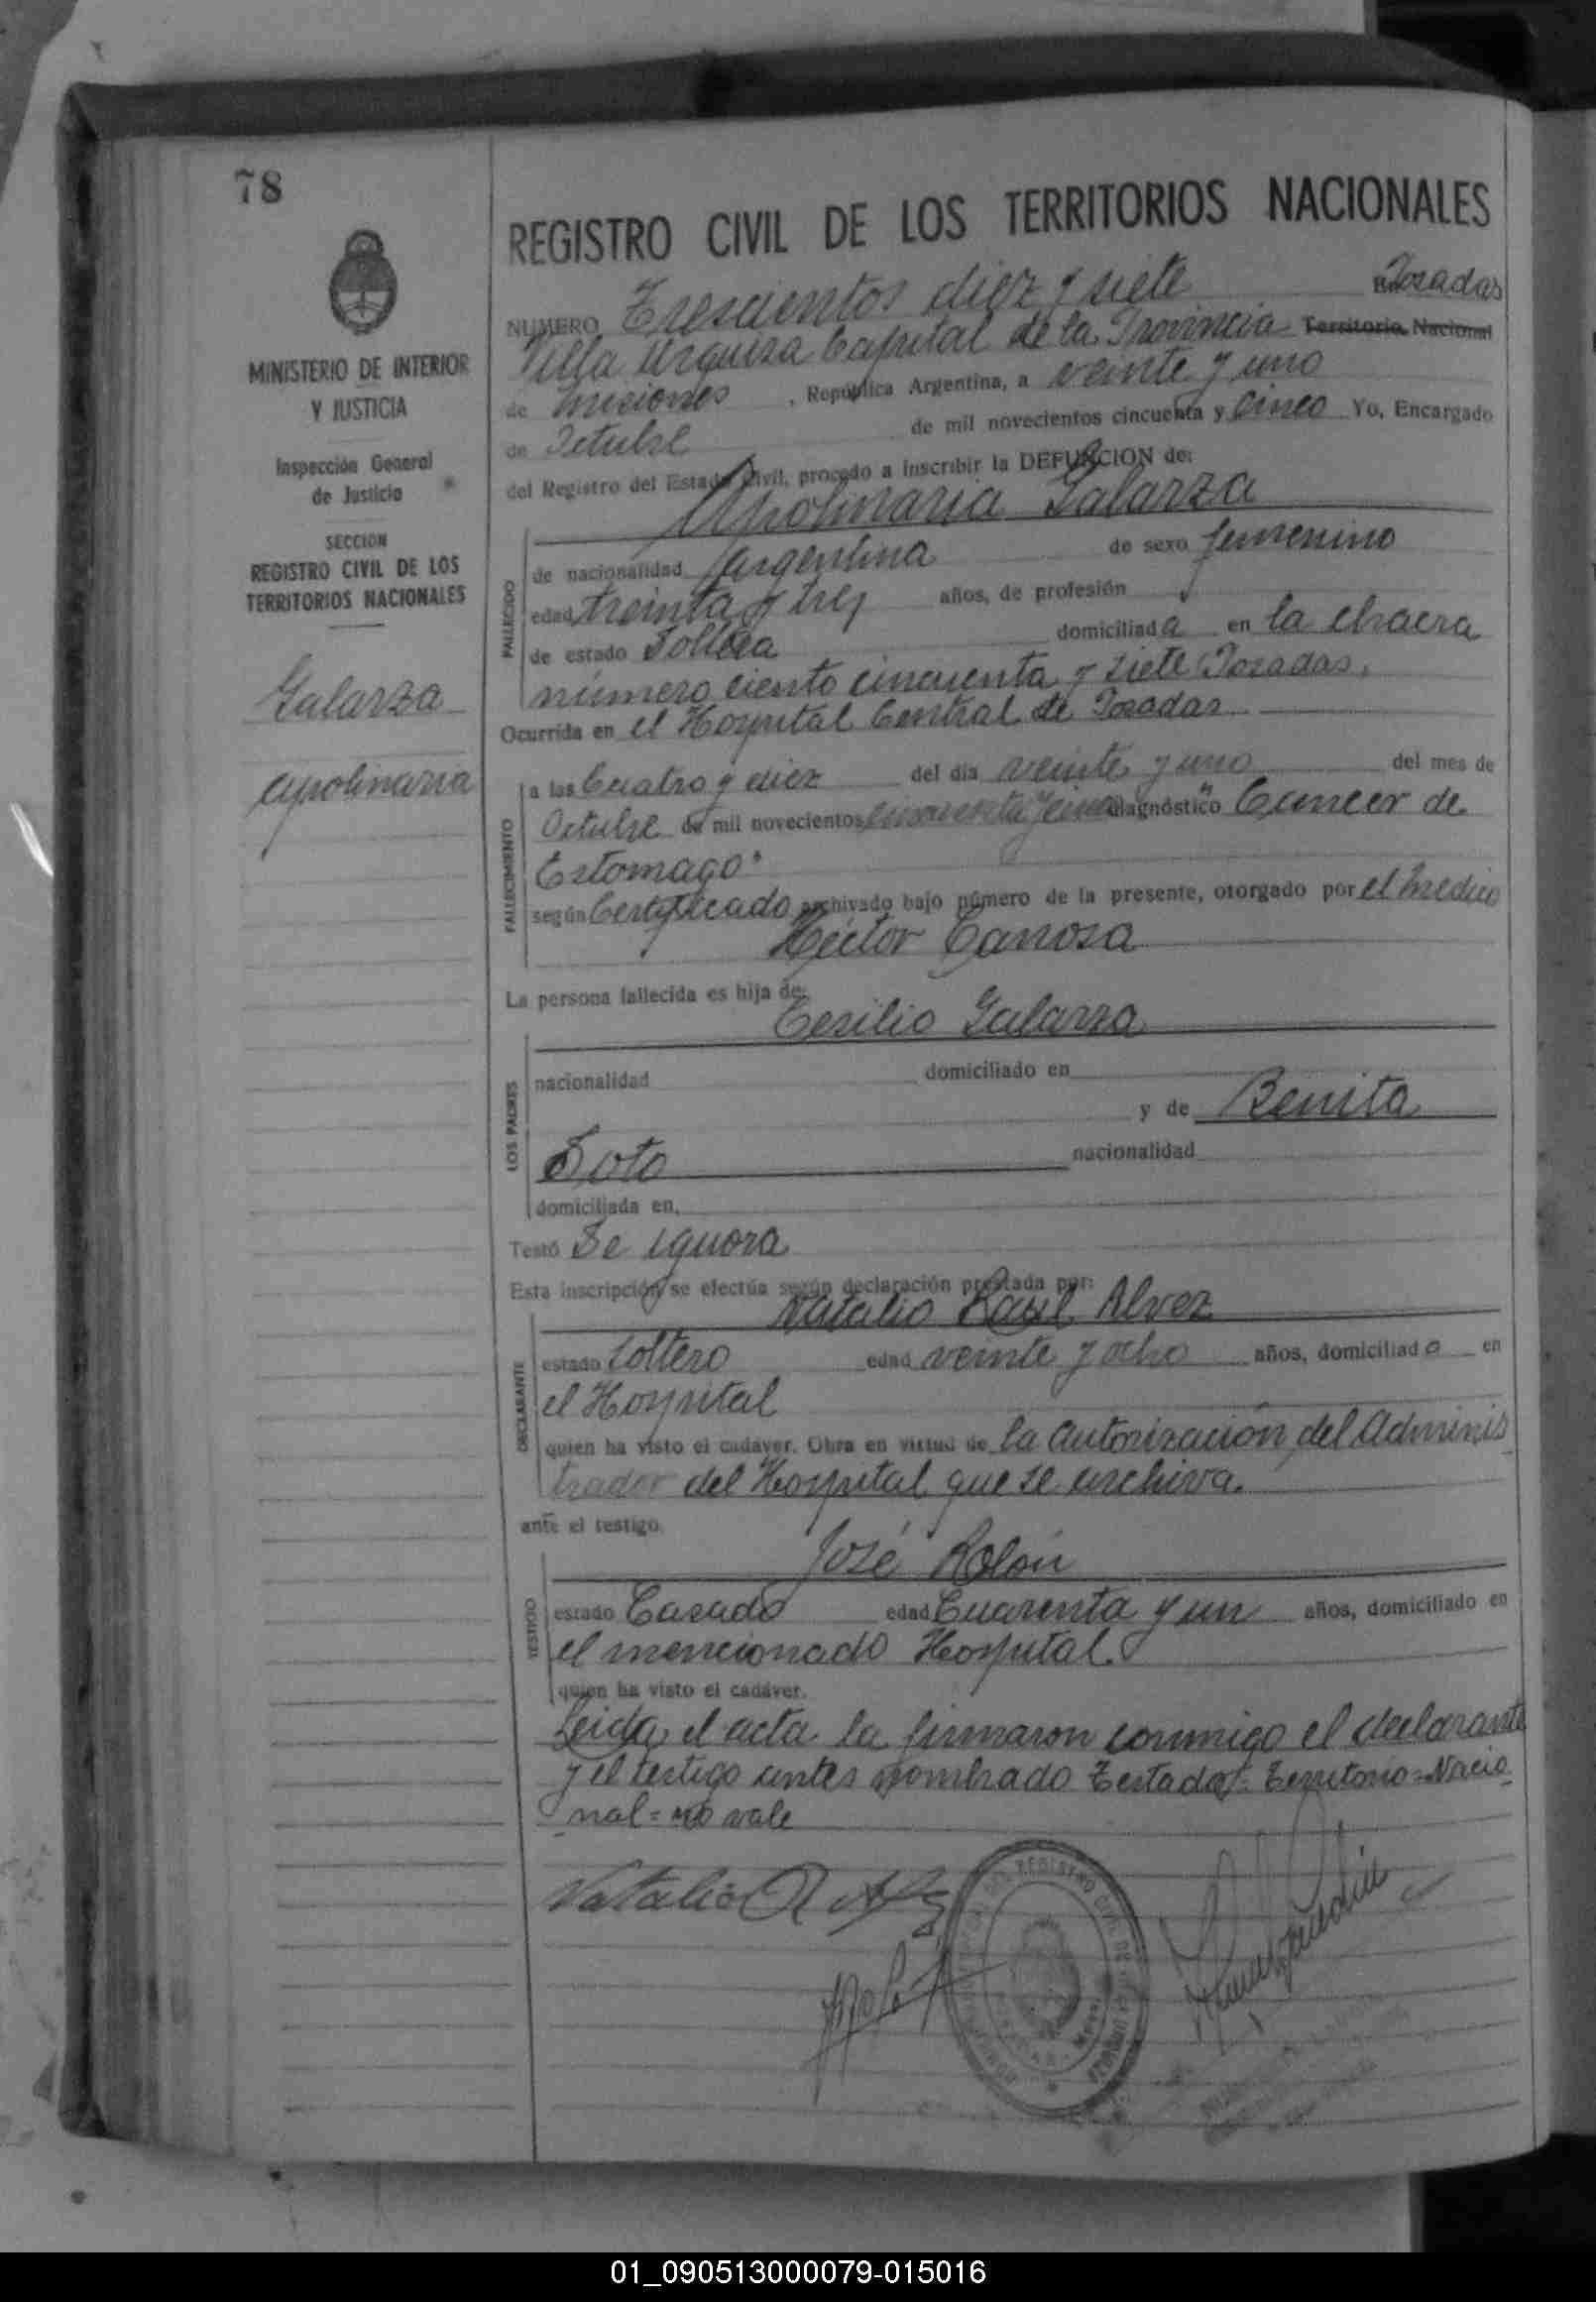 78
MINISTERIO DE INTERIOR
Y JUSTICIA
Inspección General
de Justicia
SECCION
REGISTRO CIVIL DE LOS
TERRITORIOS NACIONALES
Galarza
Apolinaria
REGISTRO CIVIL DE LOS TERRITORIOS NACIONALES
NUMERO Trescientos diez y siete En Posadas
Villa Urquiza Capital de la Provincia Territorio Nacional
de Misiones, República Argentina, a veinte y uno
de Octubre de mil novecientos cincuenta y Cinco Yo, Encargado
del Registro del Estado Civil, procedo a inscribir la DEFUNCION de:
Apolinaria Galarza
FALLECIDO
de nacionalidad Argentina de sexo femenino
edad treinta y tres años, de profesión
de estado Soltera domiciliada en la chacra
número ciento cincuenta y siete Posadas.
Ocurrida en el Hospital Central de Posadas
FALLECIMIENTO
a las Cuatro y diez del día veinte y uno del mes de
Octubre de mil novecientos cincuenta y cinco diagnóstico "Cancer de
Estomago"
según Certificado archivado bajo número de la presente, otorgado por el médico
Héctor Canosa
La persona fallecida es hija de:
Cesilio Galarza
LOS PADRES
nacionalidad domiciliado en
y de Benita
Soto nacionalidad
domiciliada en,
Testó Se ignora
Esta inscripción se efectúa según declaración prestada por:
Natalio Raul Alvez
DECLARANTE
estado soltero edad veinte y ocho años, domiciliado en
el Hospital
quien ha visto el cadáver. Obra en virtud de la autorización del Adminis
trador del Hospital que se archiva.
ante el testigo
José Rolón
TESTIGO
estado Casado edad Cuarenta y un años, domiciliado en
el mencionado Hospital.
quien ha visto el cadáver.
Leida el acta la firmaron conmigo el declarante
y el testigo antes nombrado Testado: Territorio=Nacio
nal= no vale
Natalio R Alvez
REGISTRO CIVIL DE
01_090513000079-015016